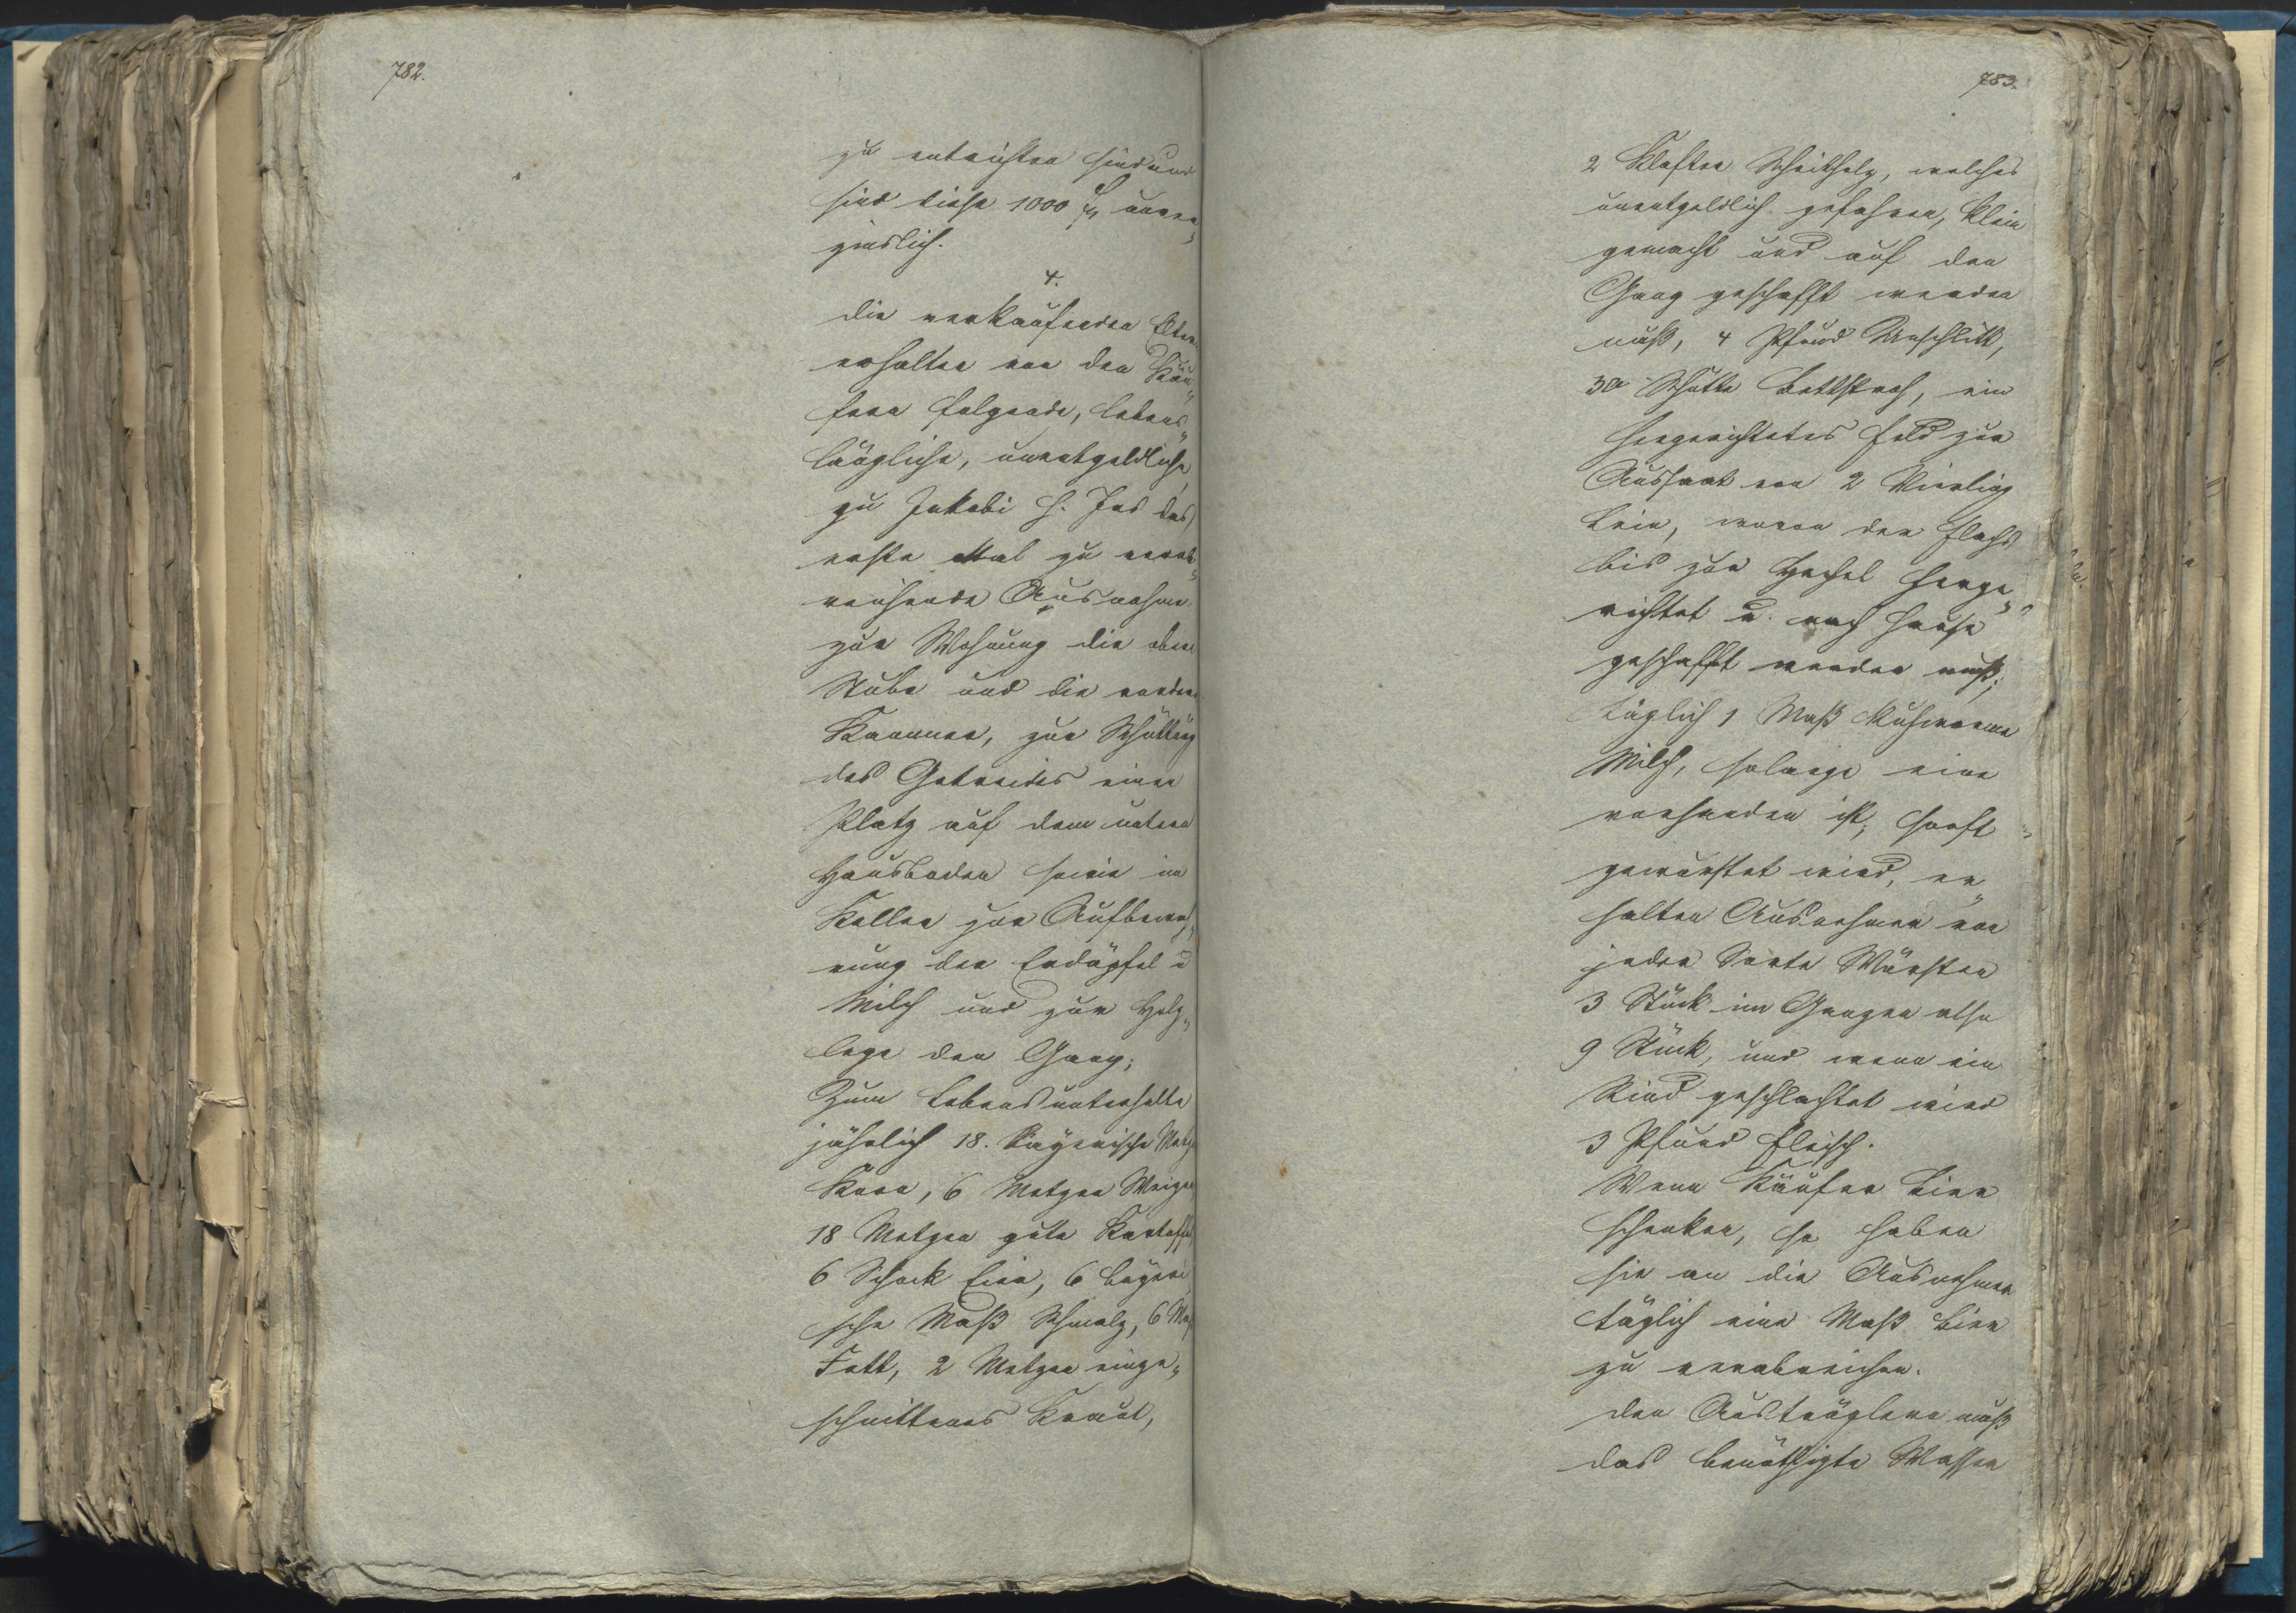 782.
zu entrichten sind und
sind diese 1000 fl unver„
zinslich.
4.
die verkaufenden Eltern
erhalten von den Käu„
fern folgende, lebens„
längliche, unentgeldliche,
zu Jakobi h. Jrs das
erste Mal zu verab„
reichende Ausnahme:
zur Wohnung die obere
Stube und die vordere
Kammer, zur Schüttung
des Getreides einen
Platz auf dem untern
Hausboden sowie im
Keller zur Aufbewah„
rung der Erdäpfel u
Milch und zur Holz„
lege den Gang;
Zum Lebensunterhalte
jährlich 18. bayerische Metzen
Korn, 6 Metzen Weizen
18 Metzen gute Kartoffel,
6 Schock Eier, 6 bayeri
sche Maß Schmalz, 6 Maß
Fett, 2 Metzen einge„
schnittenes Kraut,
783.
2 Klafter Scheitholz, welches
unentgeldlich gefahren, klein
gemacht und auf den
Gang geschafft werden
muß, 4 Pfund Unschlitt,
30 Schütte Bettstroh, ein
hergerichtetes Feld zur
Aussaat von 2 Vierling
Lein, wovon der Flachs
bis zur Hechel herge„
richtet u. nach Hause
geschafft werden muß;
täglich 1 Maß kuhwarme
Milch, solange eine
vorhanden ist;
gewurstet wird, er„
halten Ausnehmer von
jeder Sorte Würsten
3 Stück im Ganzen also
9 Stück, und wenn ein
Rind geschlachtet wird
3 Pfund Fleisch.
Wenn Käufer Bier
schenken, so haben
sie an die Ausnehmer
täglich eine Maß Bier
zu verabreichen.
den Austräglern muß
das benöthigte Wasser